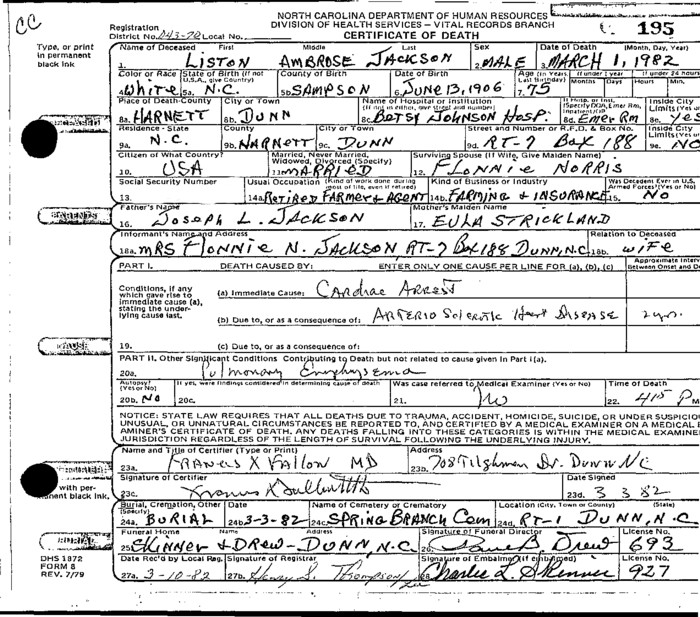 CC
NORTH CAROLINA DEPARTMENT OF HUMAN RESOURCES
DIVISION OF HEALTH SERVICES - VITAL RECORDS BRANCH
CERTIFICATE OF DEATH
195
Registration
District No. 043-70 Local No.
Type, or print
in permanent
black ink
Name of Deceased First Middle Last Sex Date of Death (Month, Day, Year)
1. LISTON AMBROSE JACKSON 2. MALE 3. MARCH 1, 1982
Color or Race State of Birth (If not U.S.A., give Country) County of Birth Date of Birth Age (In Years Last Birthday) If under 1 year If under 24 hours
Months Days Hours Min.
4. White 5a. N.C. 5b. SAMPSON 6. June 13, 1906 7. 75
Place of Death-County City or Town Name of Hospital or Institution (If not in either, give street and number) If Hosp. or Inst. Inside City
8a. HARNETT 8b. DUNN 8c. BETSY JOHNSON HOSP. 8d. Emer Rm 8e. Yes
Residence - State County City or Town Street and Number or R.F.D. & Box No. Inside City
9a. N.C. 9b. HARNETT 9c. DUNN 9d. RT-7 Box 188 9e. NO
Citizen of What Country? Married, Never Married, Widowed, Divorced (Specify) Surviving Spouse (If Wife, Give Maiden Name)
10. USA 11. MARRIED 12. FLONNIE NORRIS
Social Security Number Usual Occupation (Kind of work done during most of life, even if retired) Kind of Business or Industry Was Decedent Ever in U.S. Armed Forces? (Yes or No)
13. 14a. Retired FARMER & AGENT 14b. FARMING & INSURANCE 15. No
Father's Name Mother's Maiden Name
16. Joseph L. JACKSON 17. EULA STRICKLAND
Informant's Name and Address Relation to Deceased
18a. MRS Flonnie N. JACKSON RT-7 Box 188 DUNN, N.C. 18b. wife
PART I. DEATH CAUSED BY: ENTER ONLY ONE CAUSE PER LINE FOR (a), (b), (c) Approximate Interv
Between Onset and D
Conditions, if any
which gave rise to
immediate cause (a),
stating the under-
lying cause last.
(a) Immediate Cause: CARDIAC ARREST
(b) Due to, or as a consequence of: ARTERIO Sclerotic Heart Disease 2 yrs.
CAUSE
19. (c) Due to, or as a consequence of:
PART II. Other Significant Conditions Contributing to Death but not related to cause given in Part I(a).
20a. Pulmonary Emphysema
Autopsy? (Yes or No) If yes, were findings considered in determining cause of death Was case referred to Medical Examiner (Yes or No) Time of Death
20b. No 20c. 21. No 22. 415 P M
NOTICE: STATE LAW REQUIRES THAT ALL DEATHS DUE TO TRAUMA, ACCIDENT, HOMICIDE, SUICIDE, OR UNDER SUSPICIO
UNUSUAL, OR UNNATURAL CIRCUMSTANCES BE REPORTED TO, AND CERTIFIED BY A MEDICAL EXAMINER ON A MEDICAL E
AMINER'S CERTIFICATE OF DEATH. ANY DEATHS FALLING INTO THESE CATEGORIES IS WITHIN THE MEDICAL EXAMINE
JURISDICTION REGARDLESS OF THE LENGTH OF SURVIVAL FOLLOWING THE UNDERLYING INJURY.
Name and Title of Certifier (Type or Print) Address
23a. FRANCIS X FALLON MD 23b. 708 Tilghman Dr. Dunn NC
Signature of Certifier Date Signed
23c. 23d. 3 3 82
Burial, Cremation, Other (Specify) Date Name of Cemetery or Crematory Location (City, Town or County) (State)
24a. BURIAL 24b. 3-3-82 24c. SPRING BRANCH Cem 24d. RT-1 DUNN, N.C.
BURIAL
Funeral Home Name Address Signature of Funeral Director License No.
25. SKINNER & DREW - DUNN, N.C. 26. Drew 693
DHS 1872
FORM 8
REV. 7/79
Date Rec'd by Local Reg. Signature of Registrar Signature of Embalmer (if embalmed) License No.
27a. 3-10-82 27b. Henry S. Thompson 28. Charles L. Skinner 927